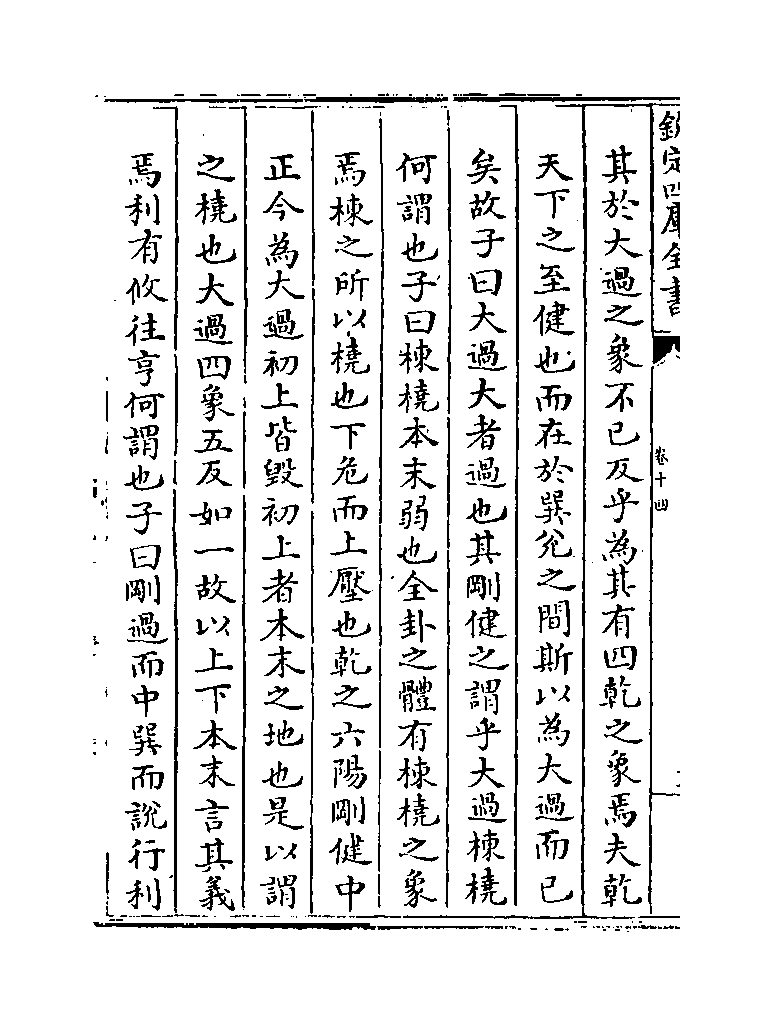 欽定四庫全書
卷十四
其於大過之象不已反乎為其有四乾之象焉夫乾
天下之至健也而在於巽兊之間斯以為大過而已
矣故子曰大過大者過也其剛健之謂乎大過棟橈
何謂也子曰棟橈本末弱也全卦之體有棟橈之象
焉棟之所以橈也下危而上壓也乾之六陽剛健中
正今為大過初上皆毀初上者本末之地也是以謂
之橈也大過四象五反如一故以上下本末言其義
焉利有攸往亨何謂也子曰剛過而中巽而說行利